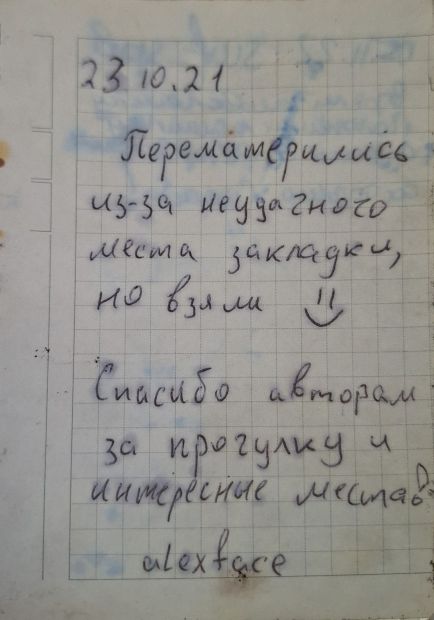 23 10.21
Перематерились
из-за неудачного
места закладки,
но взяли
Спасибо авторам
за прогулку и
интересные места
alexface